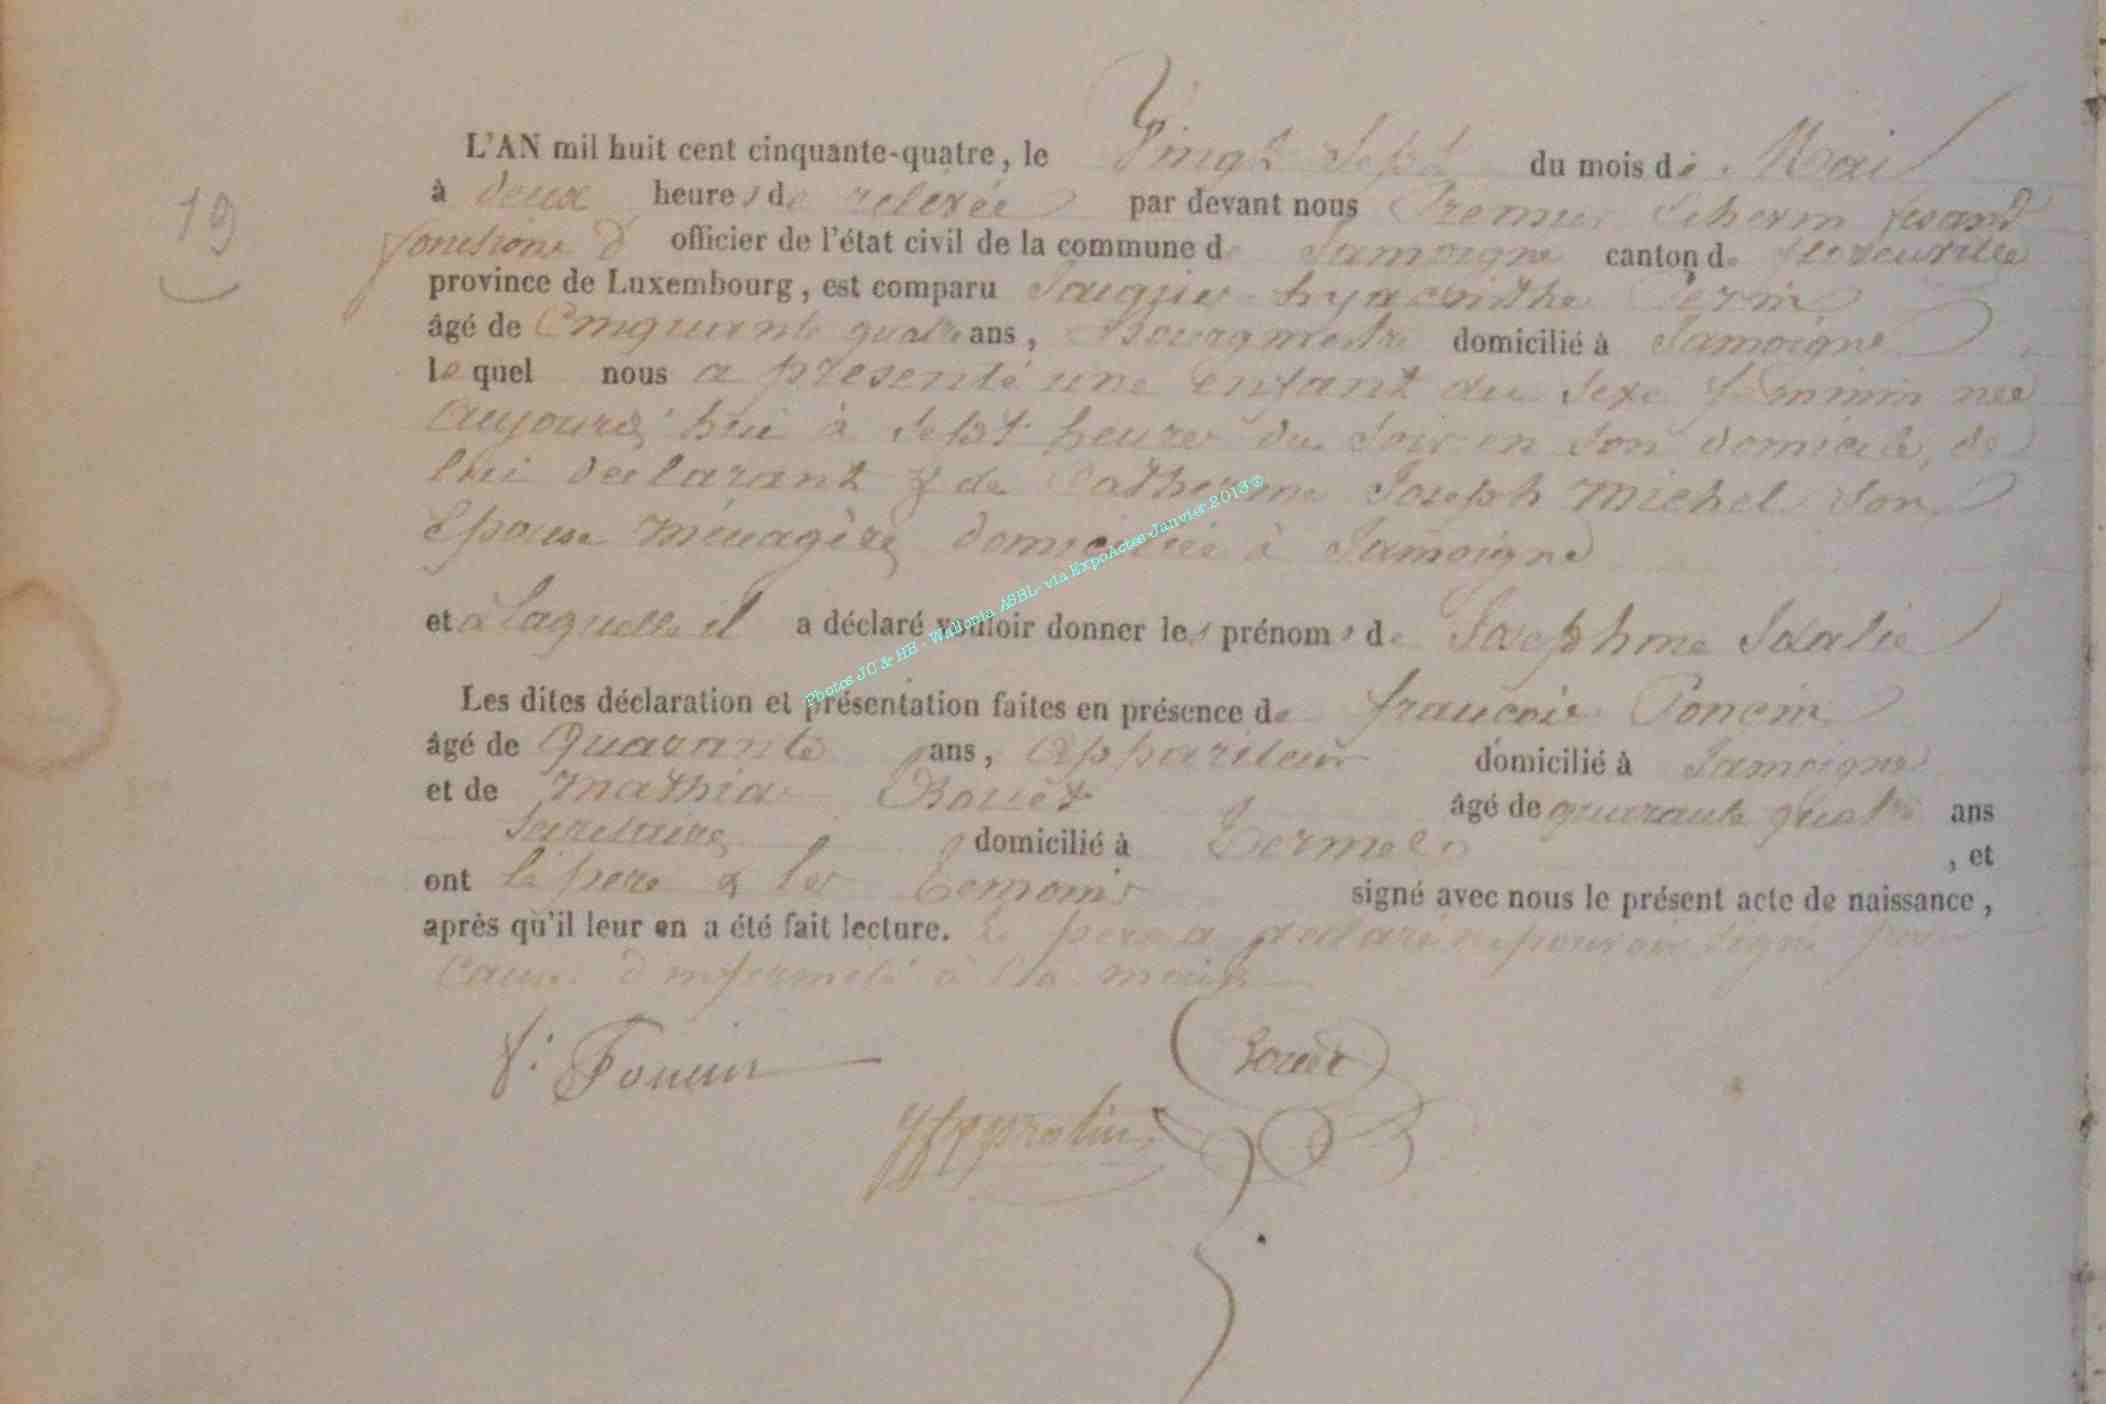 L'AN mil huit cent cinquante-quatre, le Vingt Sept du mois de Mai
19
à deux heures de relevée par devant nous Premier Echevin fesant
fonctions d' officier de l'état civil de la commune de Jamoigne canton de florenville
province de Luxembourg, est comparu hyacinthe
âgé de Cinquante quatre ans, Bourgmestre domicilié à Jamoigne
lequel nous a présenté une enfant du Sexe féminin née
aujourd'hui à Sept heures du Soir en Son domicile, de
lui déclarant & de Catherine Joseph Michel Son
Epouse Ménagère domiciliée à Jamoigne
et à laquelle il a déclaré vouloir donner les prénoms de Josephine
Les dites déclaration et présentation faites en présence de francois Poncin
âgé de Quarante ans, appariteur domicilié à Jamoigne
et de mathias Bouët âgé de quarante quatre ans
Secretaire domicilié à Termes, et
ont le père & les temoins signé avec nous le présent acte de naissance,
après qu'il leur en a été fait lecture. le pere a declaré ne pouvoir signé pour
cause d'infermité à la main
f: Poncin
Bouët
Photos JC & HH - Wallonia ASBL- via ExpoActes-Janvier 2013©